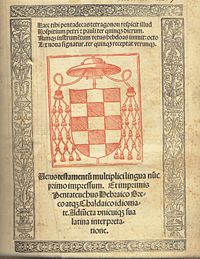 Hec tibi pentadecas tetragonon respicit illud
Hospitium petri z pauli ter quinq3 dierum.
Namq3 instrumentum vetus hebdoas innuit: octo
Lex noua signatur. ter quinq3 receptat vtrunq3.
Vetus testamentū multiplici lingua nūc
primo impressum. Et imprimis
Pentateuchus Hebraico Gre
co atq3 Chaldaico idioma
te. Adiūcta vnicuiq3 sua
latina interpreta
tione.